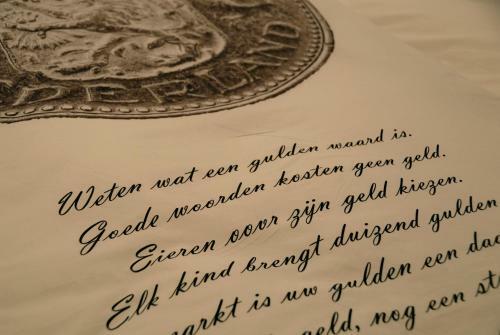 DERLAND
Weten wat een gulden waard is.
Goede woorden kosten geen geld.
Eieren voor zijn geld kiezen.
Elk kind brengt duizend gulden
markt is uw gulden een
geld, nog een